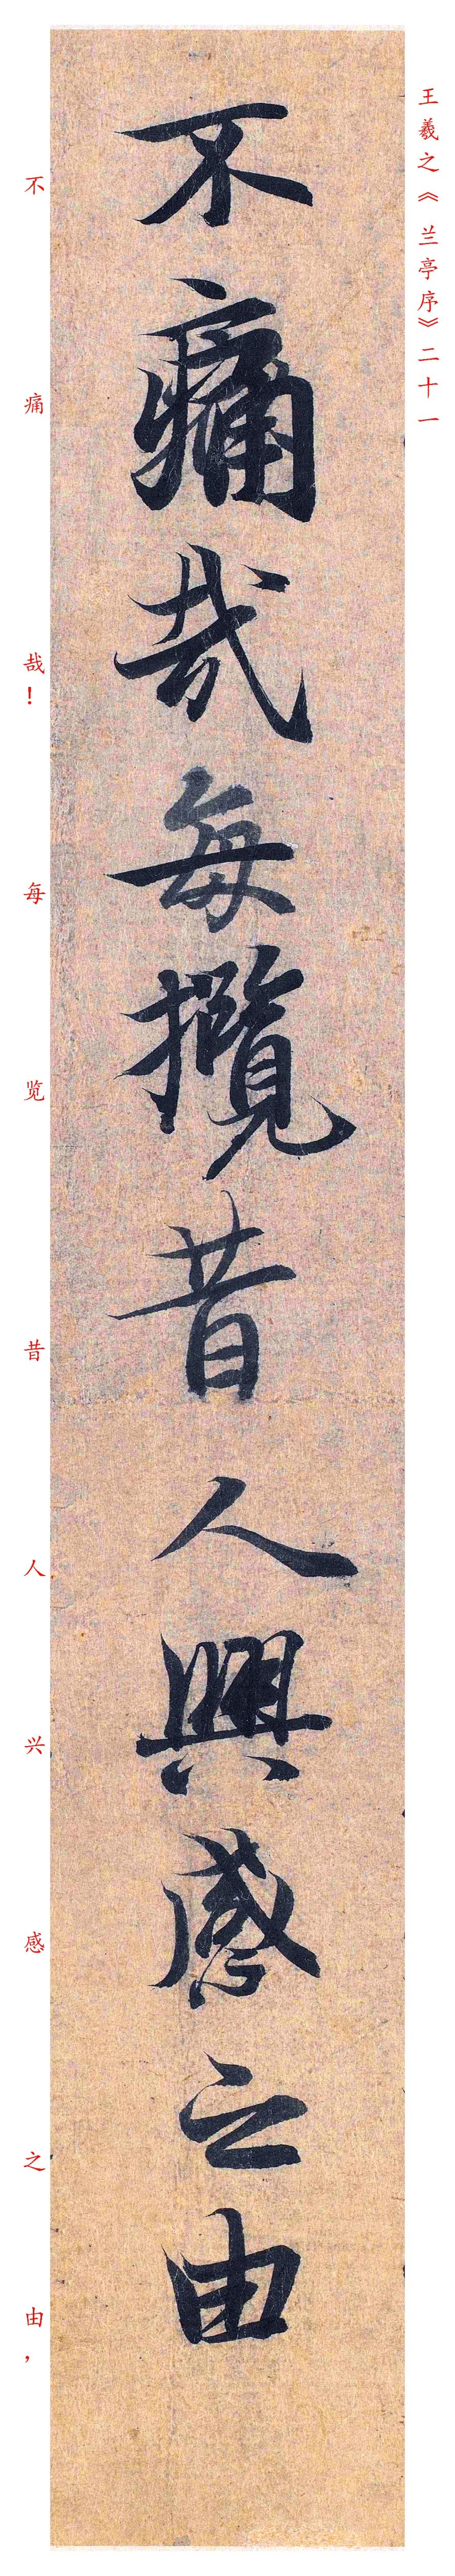 王羲之《兰亭序》二十一
不痛哉每攬昔人興感之由
不痛哉！每览昔人兴感之由，